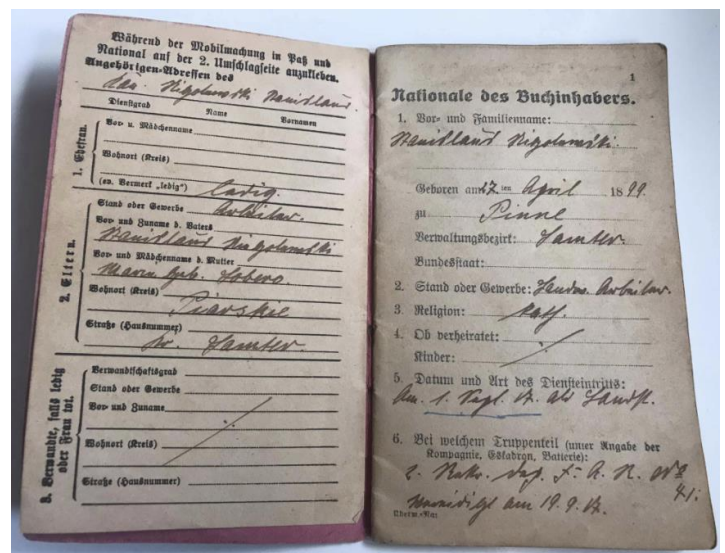 Während der Mobilmachung in Paß und
National auf der 2. Umschlagseite anzukleben.
Angehörigen-Adressen des
Kan. Nigolewski Stanislaus
Dienstgrad Name Vornamen
1. Ehefrau.
Vor- u. Mädchenname
Wohnort (Kreis)
(ev. Vermerk „ledig") ledig.
2. Eltern.
Stand oder Gewerbe Arbeiter
Vor- und Zuname d. Vaters
Stanislaus
Vor- und Mädchenname d. Mutter
geb.
Wohnort (Kreis)
Straße (Hausnummer)
Kr. Samter.
3. Verwandte, falls ledig
oder Frau tot.
Verwandtschaftsgrad
Stand oder Gewerbe
Vor- und Zuname
Wohnort (Kreis)
Straße (Hausnummer)
1
Nationale des Buchinhabers.
1. Vor- und Familienname:
Stanislaus Nigolewski.
Geboren am 27 ten April 1899
zu Pinne
Verwaltungsbezirk: Samter.
Bundesstaat:
2. Stand oder Gewerbe: Landw. Arbeiter.
3. Religion: kath.
4. Ob verheiratet:
Kinder:
5. Datum und Art des Diensteintritts:
Am 1. Sept. 17. als Landst.
6. Bei welchem Truppenteil (unter Angabe der
Kompagnie, Eskadron, Batterie):
2. Rekr. Dep. F. A. R. No
41.
Vereidigt am 19. 9. 17.